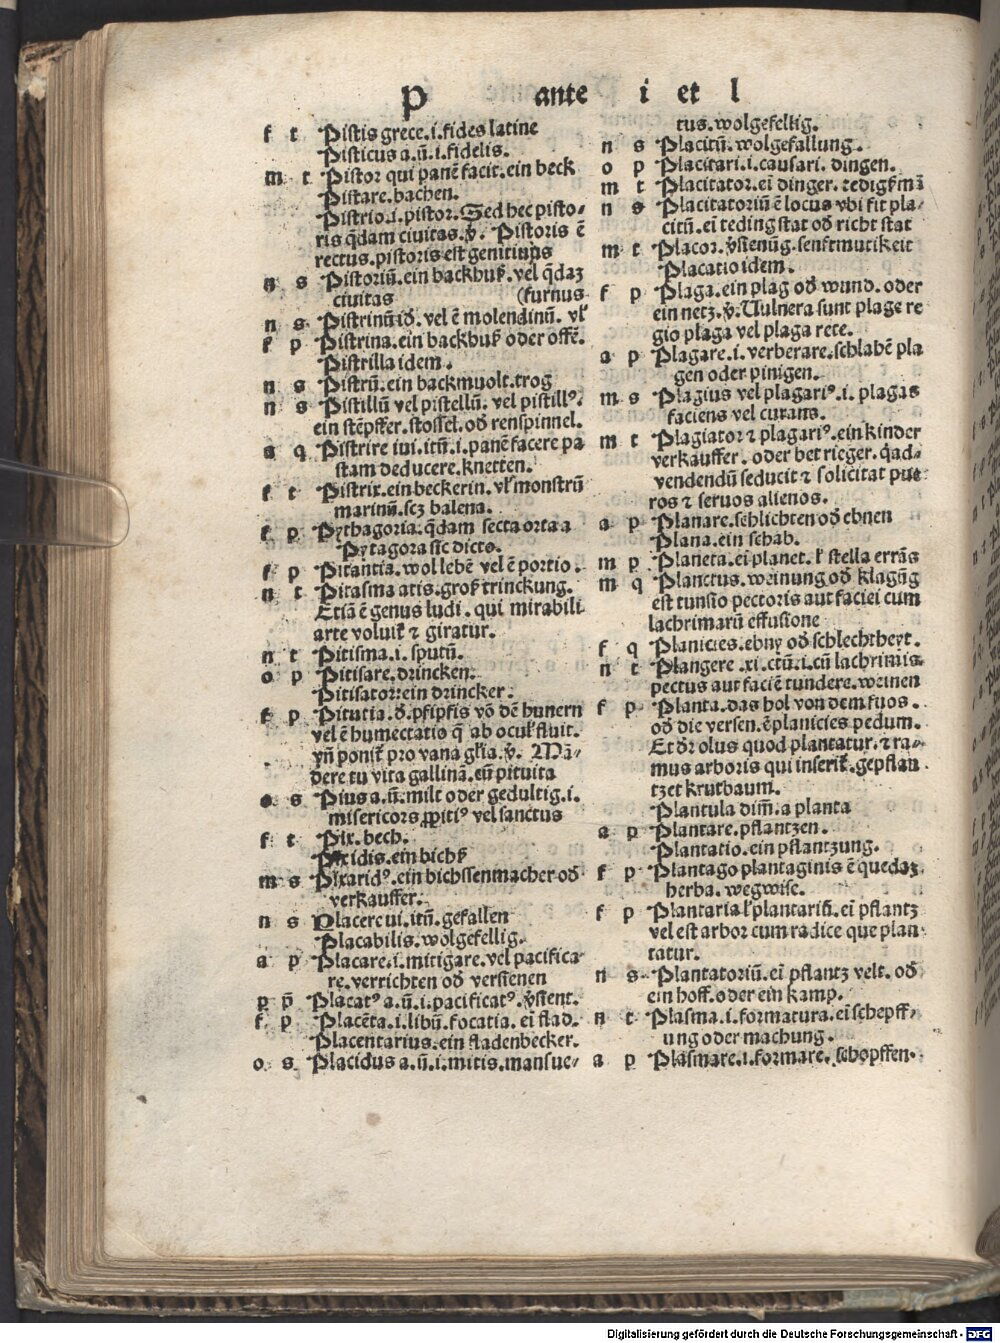 P ante i et l
f t Pistis grece .i. fides latine
Pisticus a. ū. i. fidelis.
m t Pistor qui panē facit. ein beck
Pistare. bachen.
Pistrio .i. pistor. Sed hec pisto⸗
ris q̄dam ciuitas. v̄. Pistoris ē
rectus. pistoris est genitiuus
n s Pistoriū. ein backhuß. vel q̄daz
ciuitas (furnus
n s Pistrinū id. vel ē molendinū. vl'
f p Pistrina. ein backhuß oder offē.
Pistrilla idem.
n s Pistrū. ein backmuolt. trog
n s Pistillū vel pistellū. vel pistillꝰ.
ein stēpffer. stoffel. od renspinnel.
a q Pistrire iui. itū. i. panē facere pa
stam deducere. knetten.
f t Pistrix. ein beckerin. vl' monstrū
marinū. scz balena.
f p Pythagoria. q̄dam secta orta a
Pytagora sic dicto.
f p Pitantia. wol lebē vel ē portio.
n t Pitasma atis. groß trinckung.
Etiā ē genus ludi. qui mirabili
arte voluit̄ ⁊ giratur.
n t Pitisma .i. sputū.
o p Pitisare. drincken.
Pitisator: ein drincker.
f p Pitutia. d̄. pfipfis vō dē hunern
vel ē humectatio q̄ ab ocul' fluit.
vn̄ ponit̄ pro vana gl'ia. v̄. Mā⸗
dere tu vita gallinā. cū pituita
o s Pius a. ū. milt oder gedultig. i.
misericors ꝓpitiꝰ vel sanctus
f t Pix. bech.
Pixidis. ein bichß
m s Pixaridꝰ. ein bichssenmacher od
verkauffer.
n s Placere ui. itū. gefallen
Placabilis. wolgefellig.
a p Placare .i. mitigare. vel pacifica
re. verrichten od versienen
p p̄ Placatꝰ a. ū. i. pacificatꝰ. v̄sient.
f p Placēta .i. libū. focatia. ei flad.
Placentarius. ein fladenbecker.
o s Placidus a. ū. i. mitis. mansue⸗
tus. wolgefellig.
n s Placitū. wolgefallung.
o p Placitari .i. causari. dingen.
m t Placitator. ei dinger.
n s Placitatoriū ē locus vbi fit pla⸗
citū. ei teding stat od richt stat
m t Placor. v̄sienūg. senftmutikeit
Placatio idem.
f p Plaga. ein plag od wund. oder
ein netz. v̄. Uulnera sunt plage re
gio plaga vel plaga rete.
a p Plagare .i. verberare. schlabē pla
gen oder pinigen.
m s Plagius vel plagariꝰ. i. plagas
faciens vel curans.
m t Plagiator ⁊ plagariꝰ. ein kinder
verkauffer. oder betrieger. q̄ ad⸗
vendendū seducit ⁊ solicitat pue
ros ⁊ seruos alienos.
a p Planare. schlichten od ebnen
Plana. ein schab.
m p Planeta. ei planet. l' stella errās
m q Planctus. weinung od klagūg
est tunsio pectoris aut faciei cum
lachrimarū effusione
f q Planicies. ebny od schlechtheyt.
n t Plangere. xi. ctū. i. cū lachrimis
pectus aut faciē tundere. weinen
f p Planta. das hol von dem fuos.
od die versen. ē planicies pedum.
Et d̄r olus quod plantatur. ⁊ ra⸗
mus arboris qui inserit̄. gepflan
tzet krutbaum.
Plantula dim̄. a planta
a p Plantare. pflantzen.
Plantatio. ein pflantzung.
f p Plantago plantaginis ē quedaz
herba. wegwise.
f p Plantaria l' plantariū. ei pflantz
vel est arbor cum radice que plan
tatur.
n s Plantatoriū. ei pflantz velt. od
ein hoff. oder ein kamp.
n t Plasma .i. formatura. ei schepff⸗
ung oder machung.
a p Plasmare .i. formare. schopffen.
Digitalisierung gefördert durch die Deutsche Forschungsgemeinschaft - DFG